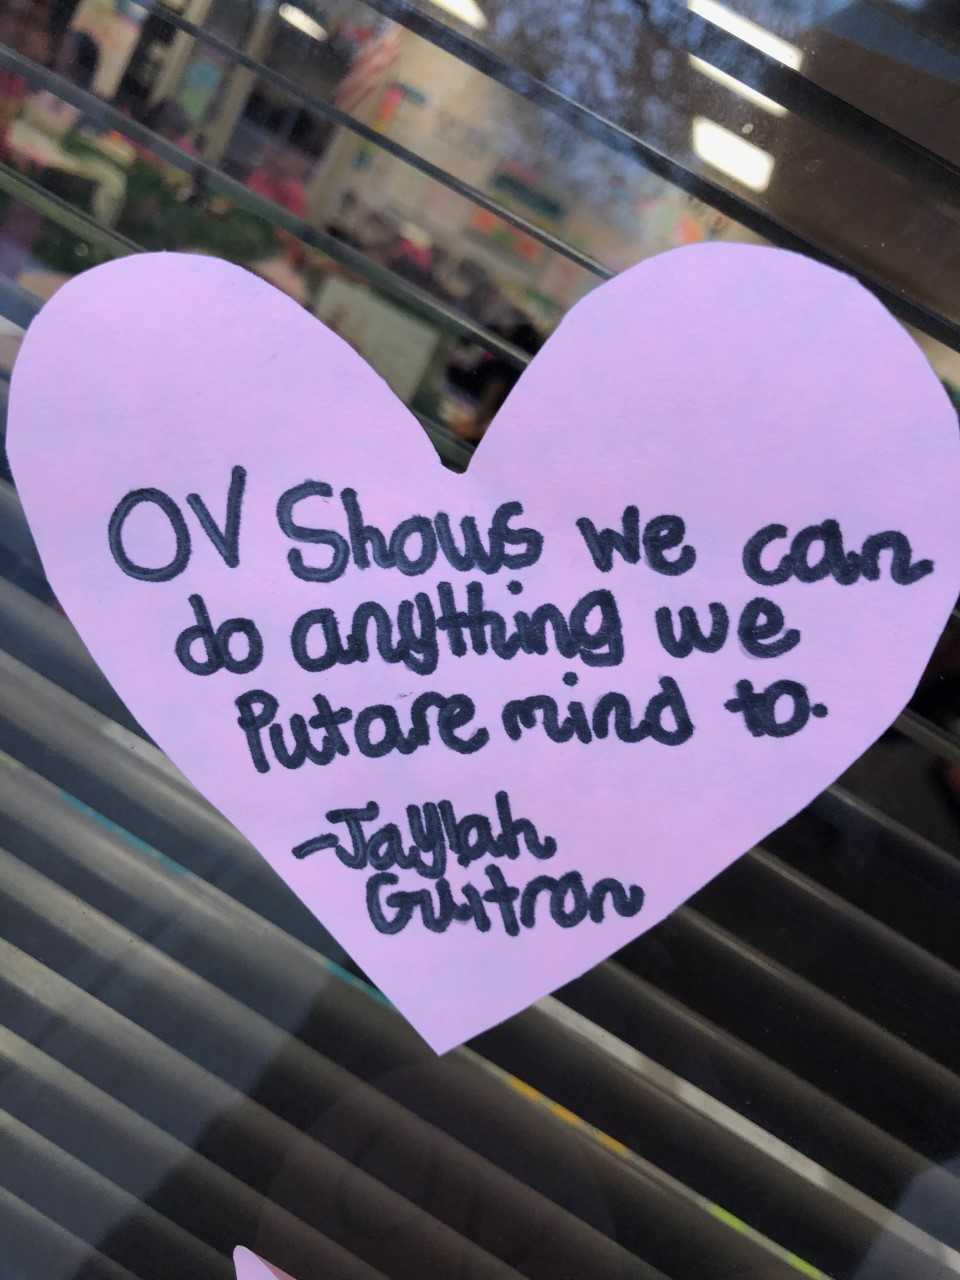 OV Shows we can
do anything we
Put are mind to.
-Jaylah
Guitron